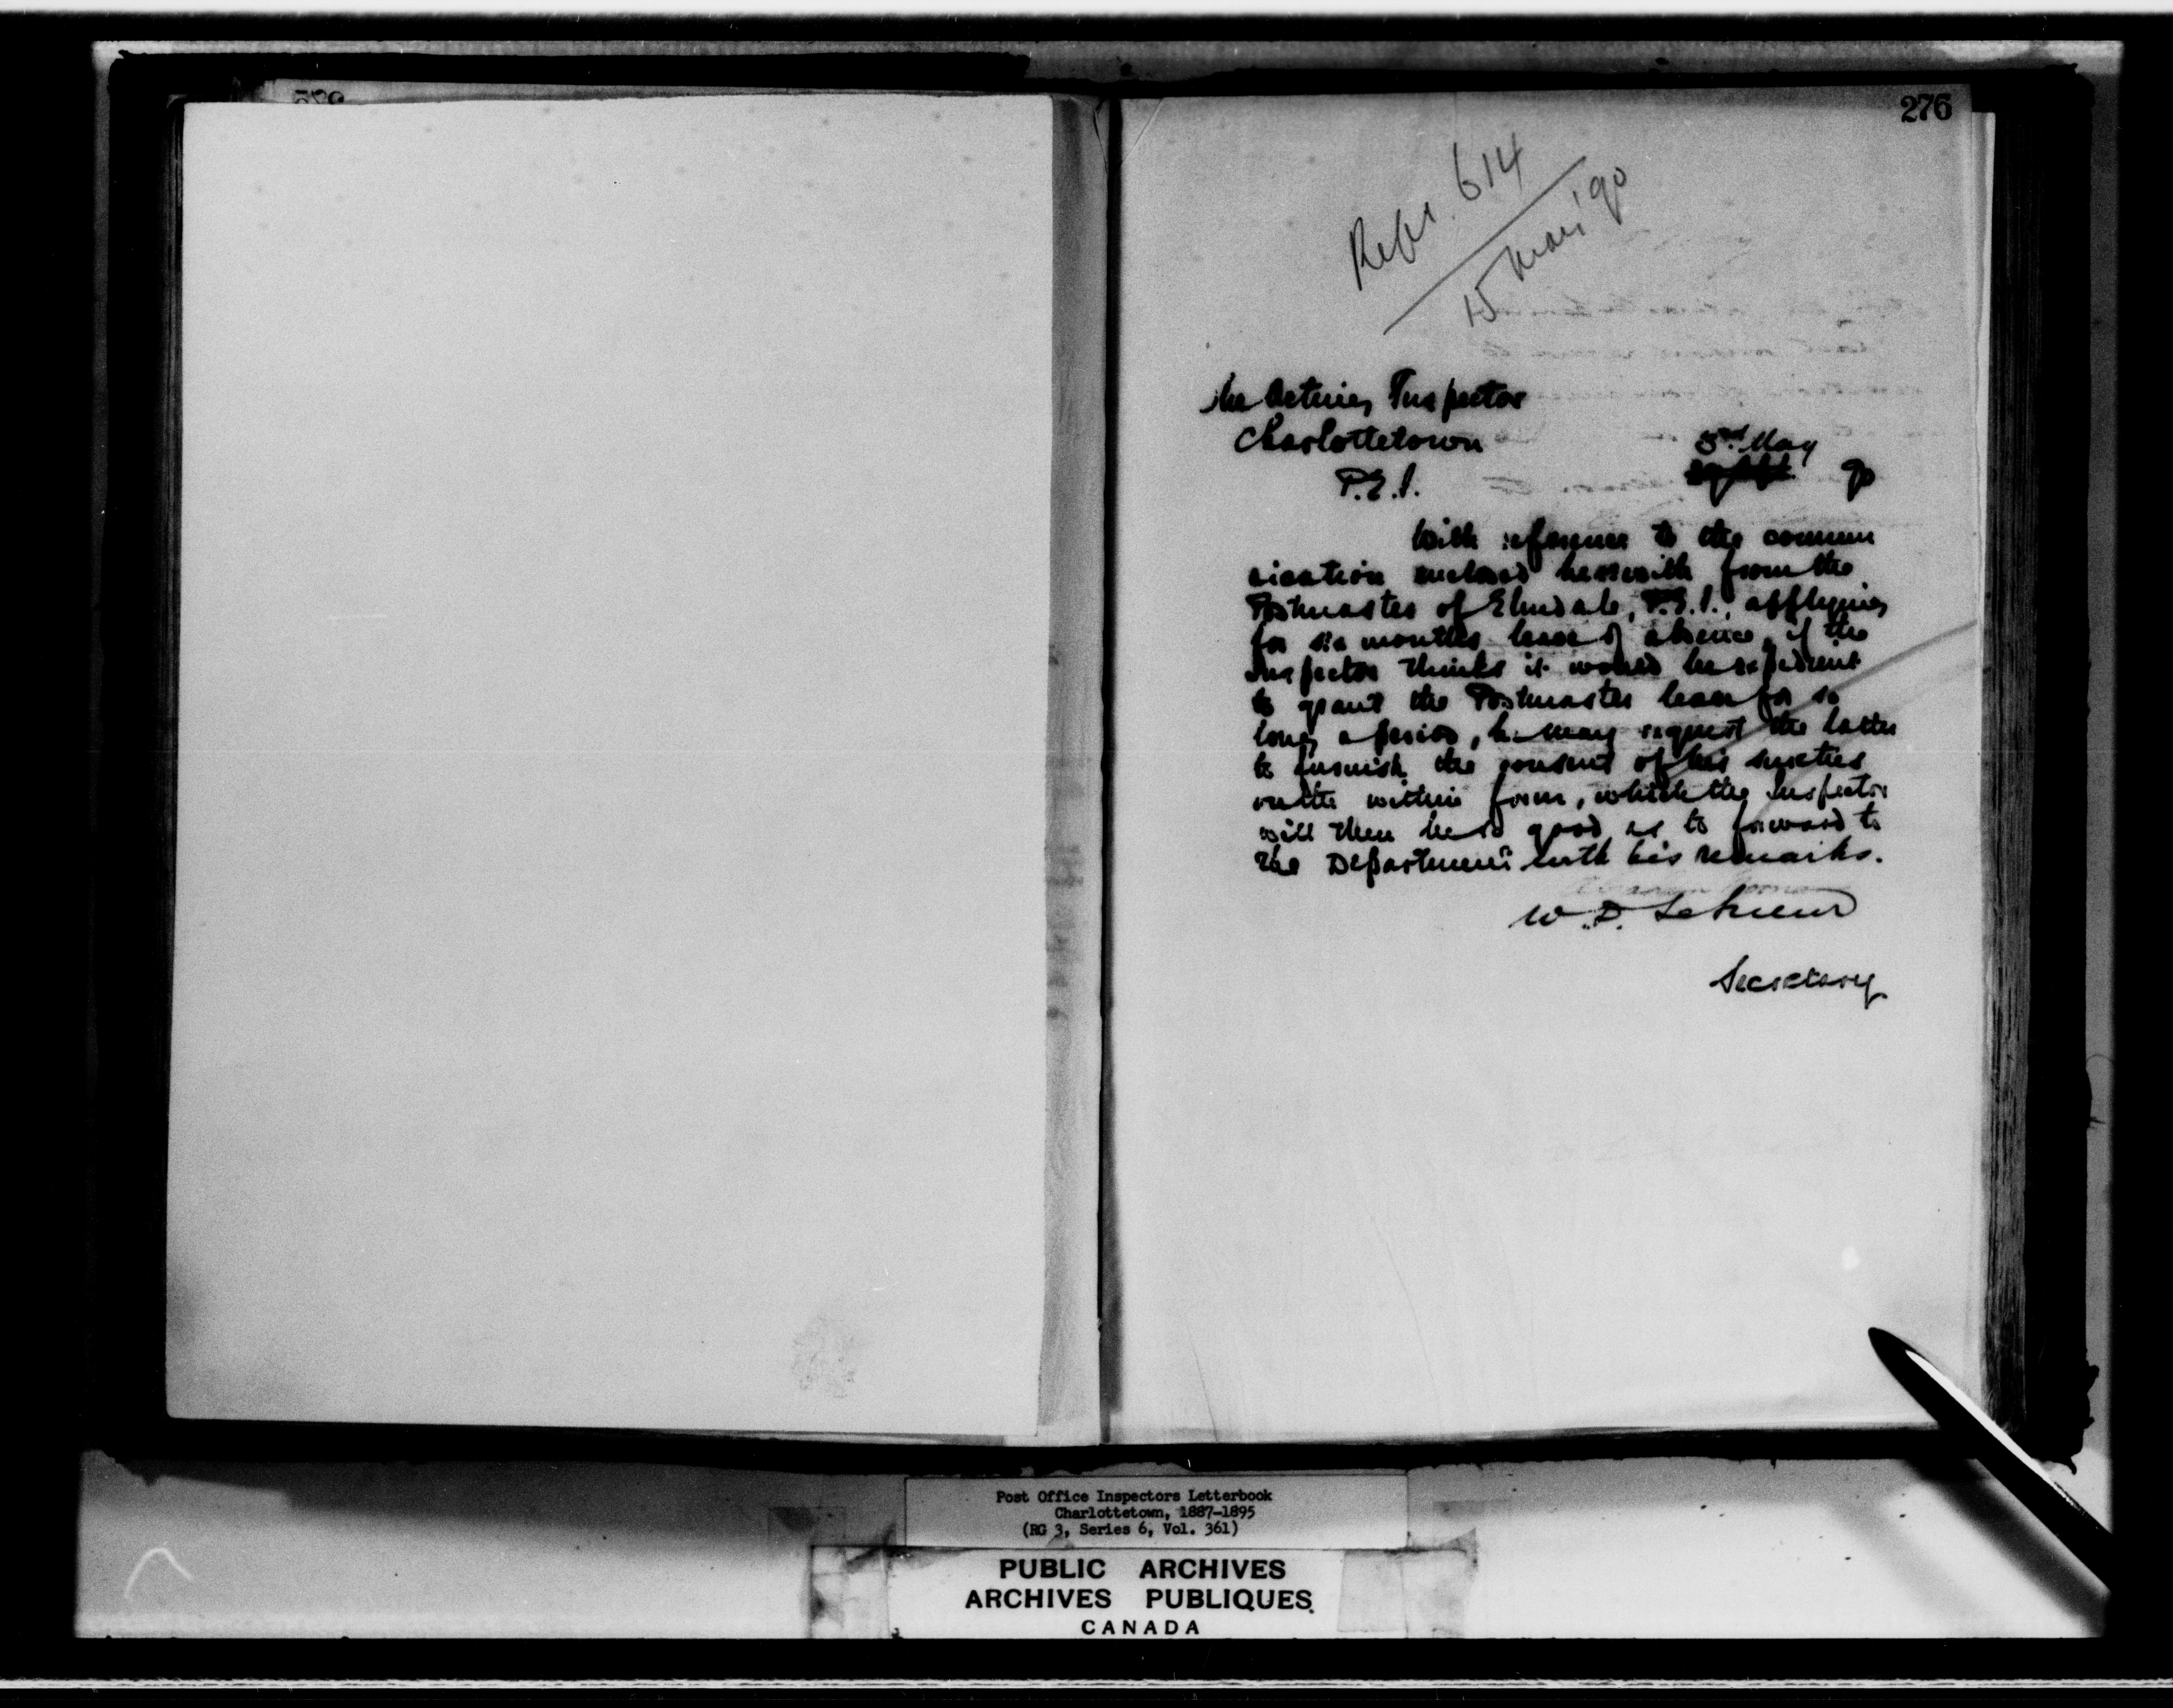 276
Refs. 614
15 Mai '90
The Acting Inspector
Charlottetown
P.E.I.
3rd May
90
With reference to the commun
ication enclosed herewith from the
Postmaster of Elmsdale, P.E.I., applying
for six months leave of absence, if the
Inspector thinks it would be expedient
to grant the Postmaster leave for so
long a period, he may request the latter
to furnish the consent of his sureties
on the within form, which the Inspector
will then be so good as to forward to
the Department with his remarks.
W. D. LeSueur
Secretary
Post Office Inspectors Letterbook
Charlottetown, 1887-1895
(RG 3, Series 6, Vol. 361)
PUBLIC ARCHIVES
ARCHIVES PUBLIQUES
CANADA